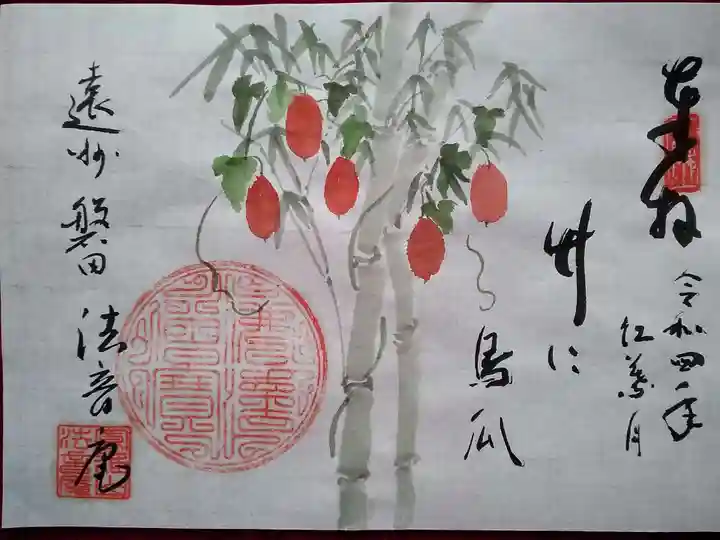 奉拝
令和四年
紅葉月
竹に
烏瓜
遠州磐田 法音庵